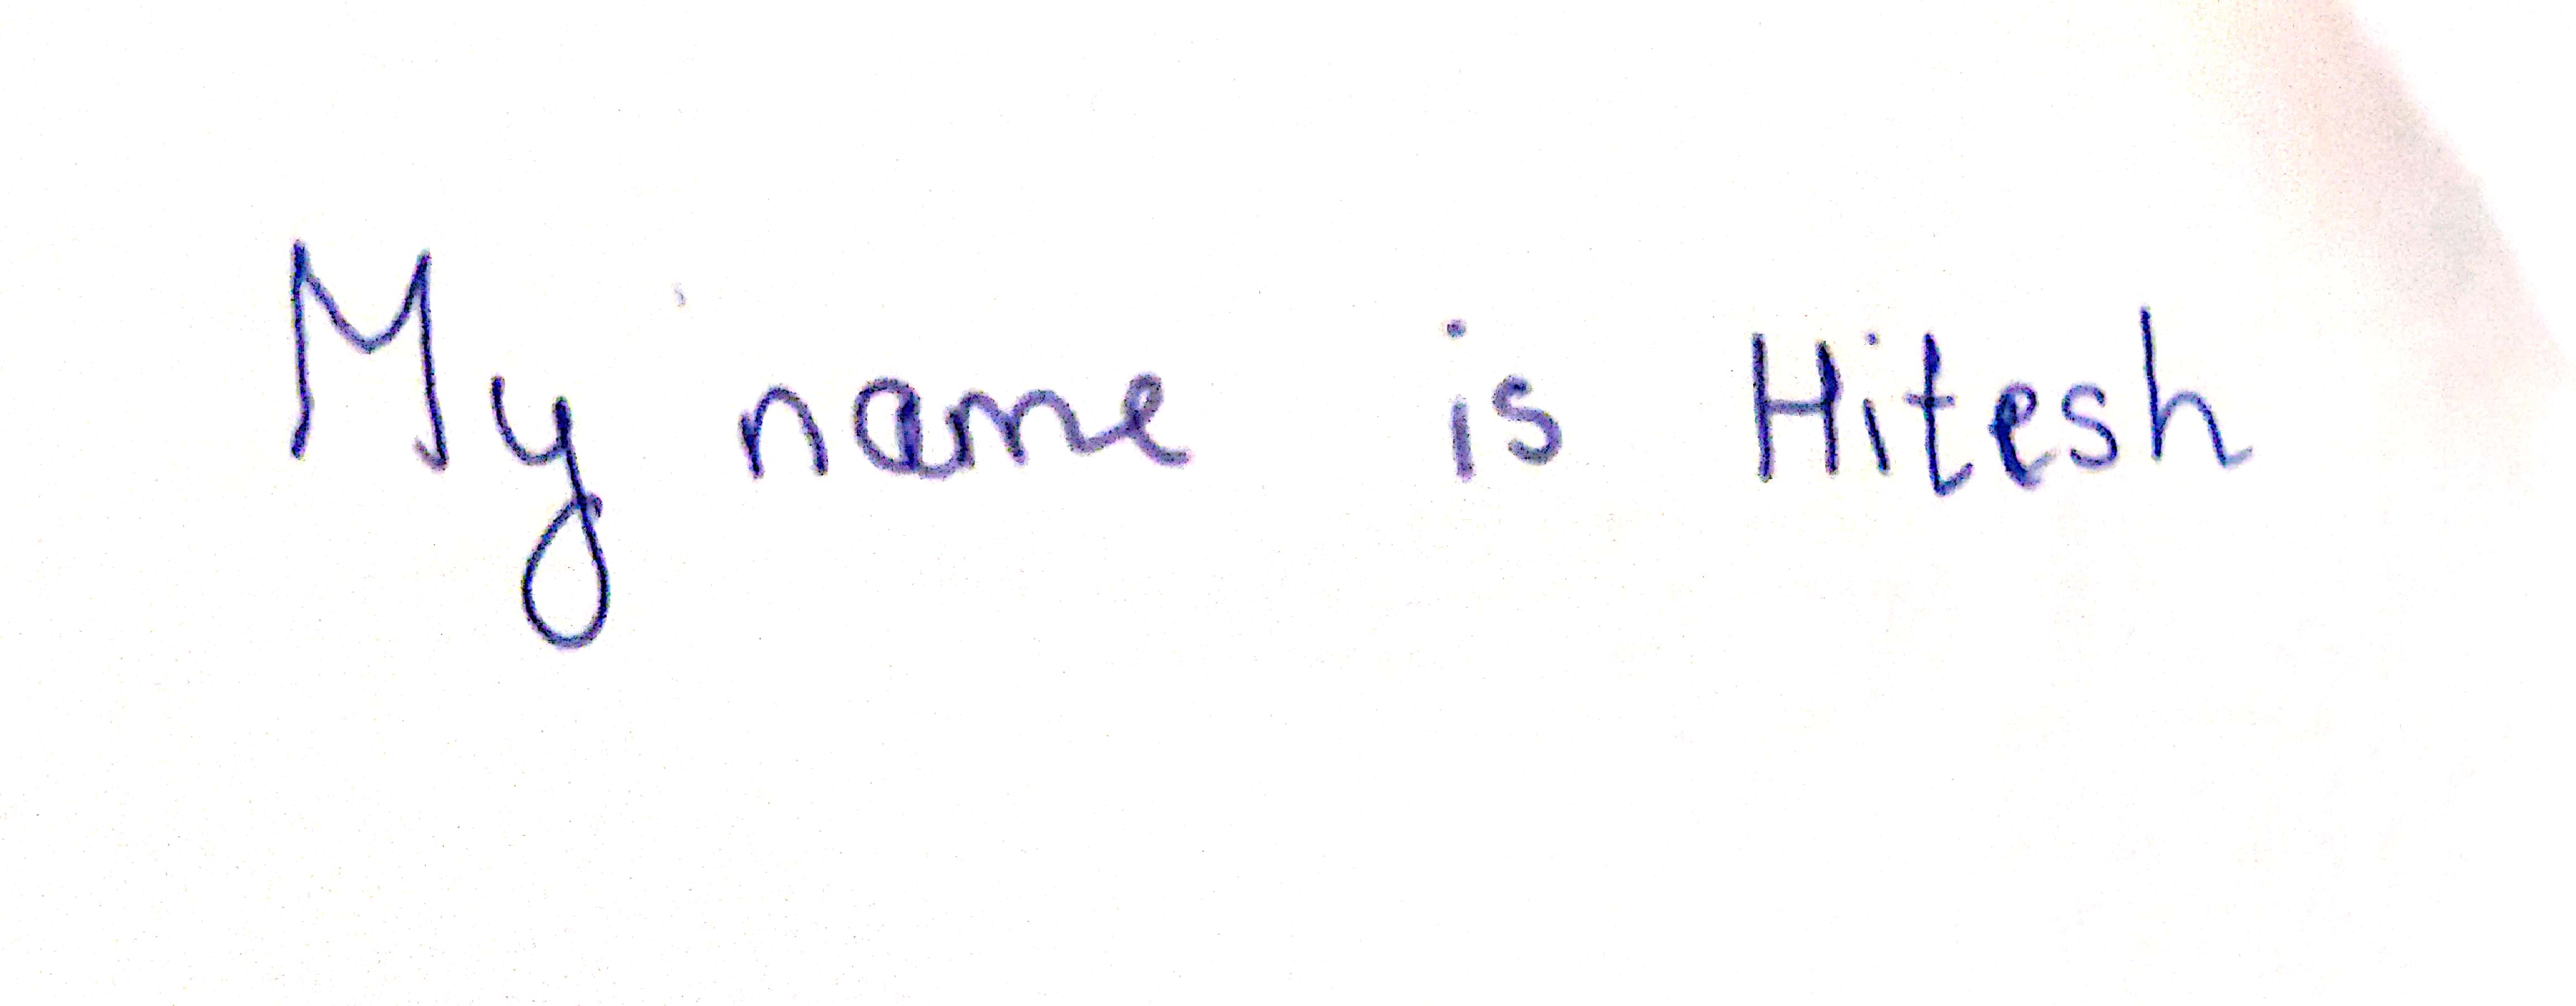 My name is Hitesh